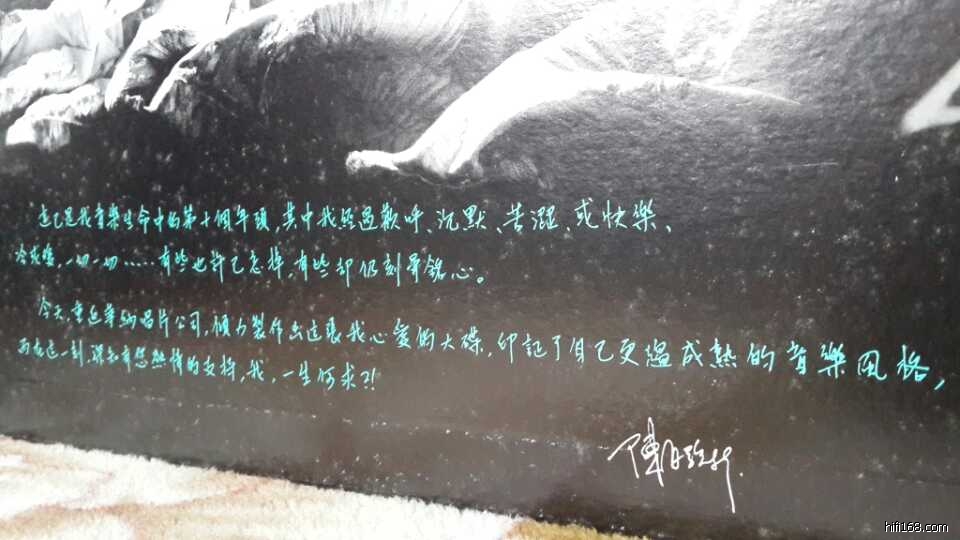 這已是我音樂生命中的第十個年頭,其中我經過歡呼、沉默、苦澀、或快樂、
冷或愛,一切一切……有些也許已忘掉,有些卻仍刻骨銘心。
今天,重返華納唱片公司,傾力製作出這張我心愛的大碟,印記了自己更趨成熟的音樂風格,
而在這一刻,深知有您熱情的支持,我,一生何求?!
hifi168.com